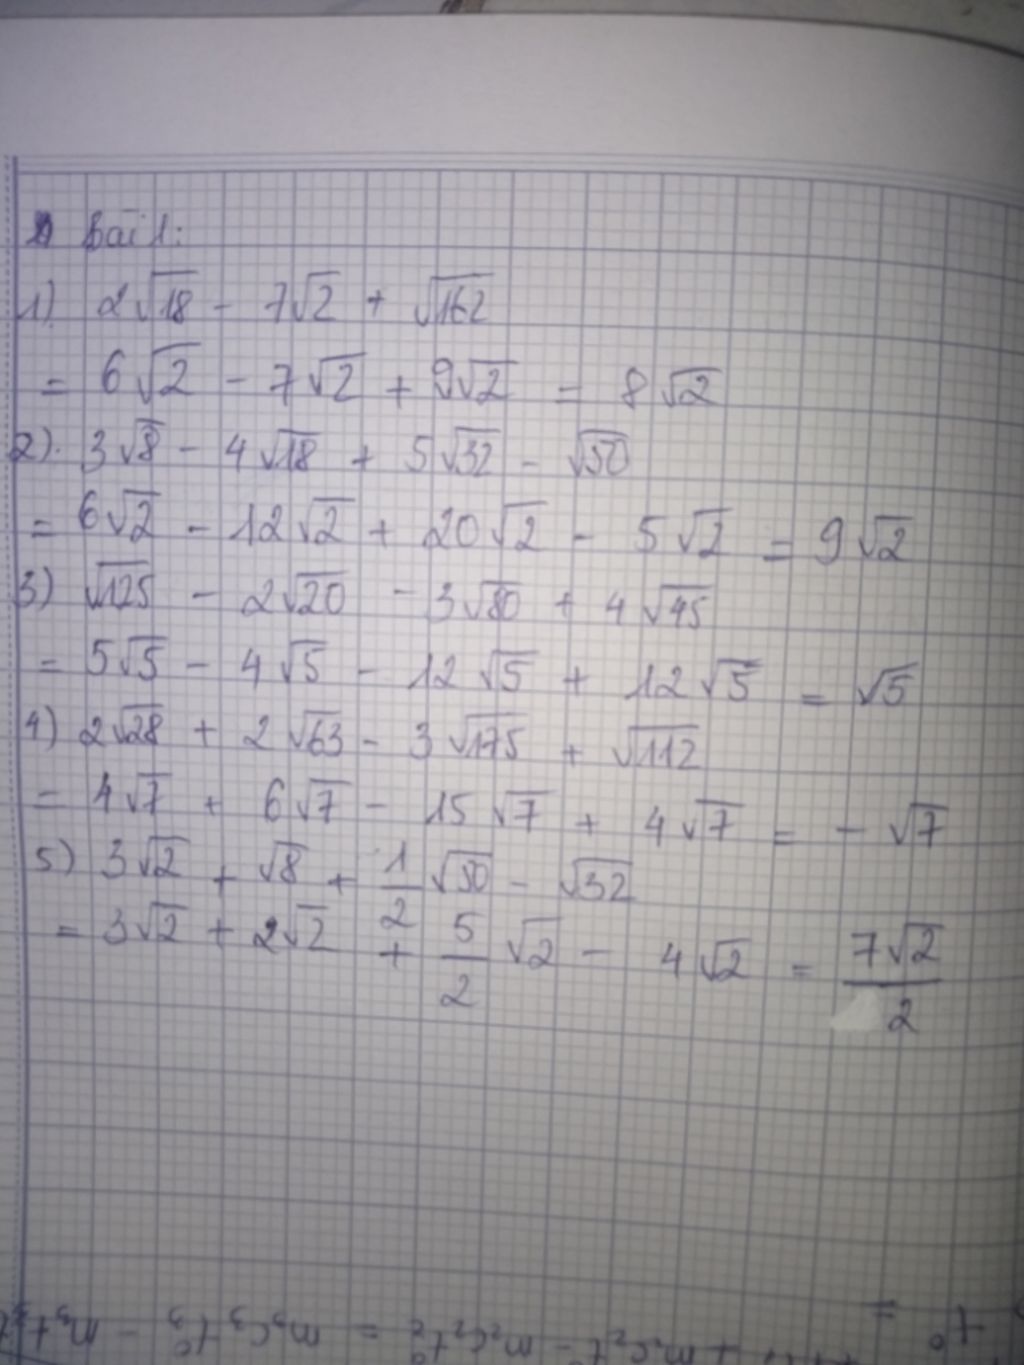 Bài 1:
1) 2√18 - 7√2 + √162
= 6√2 - 7√2 + 9√2 = 8√2
2) 3√8 - 4√18 + 5√32 - √50
= 6√2 - 12√2 + 20√2 - 5√2 = 9√2
3) √125 - 2√20 - 3√80 + 4√45
= 5√5 - 4√5 - 12√5 + 12√5 = √5
4) 2√28 + 2√63 - 3√175 + √112
= 4√7 + 6√7 - 15√7 + 4√7 = - √7
5) 3√2 + √8 + 1/2 √50 - √32
= 3√2 + 2√2 + 5/2 √2 - 4√2 = 7√2/2